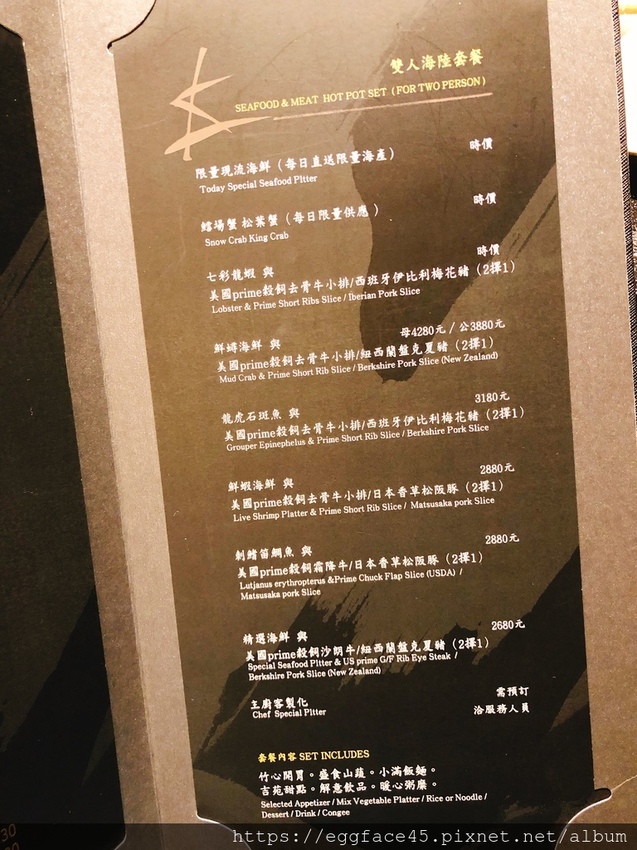 雙人海陸套餐
SEAFOOD & MEAT HOT POT SET ( FOR TWO PERSON )
限量現流海鮮（每日直送限量海產） 時價
Today Special Seafood Pltter
鱈場蟹 松葉蟹（每日限量供應） 時價
Snow Crab King Crab
七彩龍蝦 與 時價
美國prime穀飼去骨牛小排/西班牙伊比利梅花豬（2擇1）
Lobster & Prime Short Ribs Slice / Iberian Pork Slice
鮮蟳海鮮 與 母4280元 / 公3880元
美國prime穀飼去骨牛小排/紐西蘭盤克夏豬（2擇1）
Mud Crab & Prime Short Rib Slice / Berkshire Pork Slice (New Zealand)
龍虎石斑魚 與 3180元
美國prime穀飼去骨牛小排/西班牙伊比利梅花豬（2擇1）
Grouper Epinephelus & Prime Short Rib Slice / Berkshire Pork Slice
鮮蝦海鮮 與 2880元
美國prime穀飼去骨牛小排/日本香草松阪豚（2擇1）
Live Shrimp Platter & Prime Short Rib Slice / Matsusaka pork Slice
刺鰭笛鯛魚 與 2880元
美國prime穀飼霜降牛/日本香草松阪豚（2擇1）
Lutjanus erythropterus &Prime Chuck Flap Slice (USDA) /
Matsusaka pork Slice
精選海鮮 與 2680元
美國prime穀飼沙朗牛/紐西蘭盤克夏豬（2擇1）
Special Seafood Pltter & US prime G/F Rib Eye Steak /
Berkshire Pork Slice (New Zealand)
主廚客製化 需預訂
Chef Special Pltter 洽服務人員
套餐內容 SET INCLUDES
竹心開胃。盛食山蔬。小滿飯麵。
吉苑甜點。解意飲品。暖心粥糜。
Selected Appetizer / Mix Vegetable Platter / Rice or Noodle /
Dessert / Drink / Congee
https://eggface45.pixnet.net/album